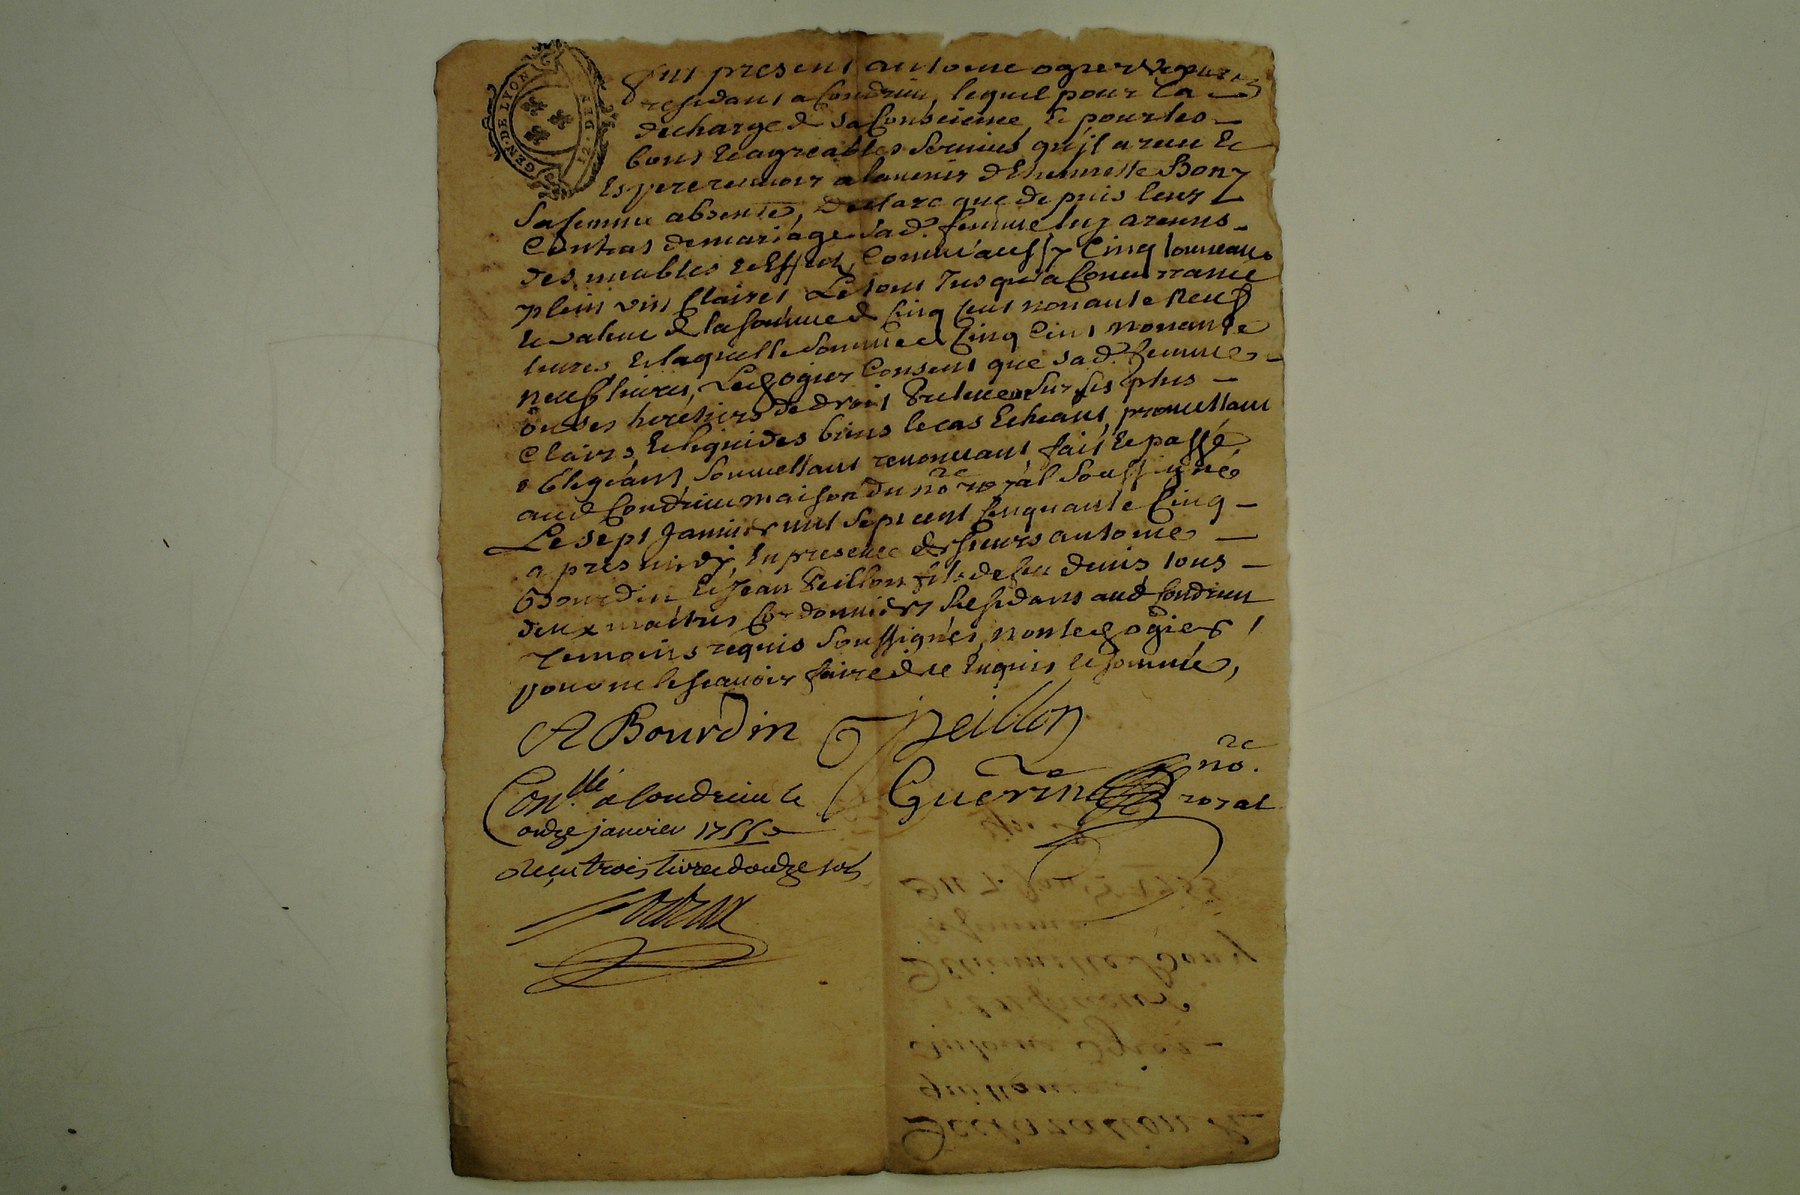 GEN. DE LYON
12 DEN
Fut present antoine ogier
residant a Condrieu, lequel pour la
decharge de sa Conscience, et pour les
bons et agreables services quil a receu et
Espere recevoir a lavenir dEtiennette Bony
sa femme absente, declare que depuis leur
Contrat de mariage sad. femme luy a remis
des meubles et Effets, comm'aussy Cinq tonneaux
plein vin clairet, Le tout jusqu'a Concurrance
et valeur de la somme de Cinq Cent nonante neuf
livres et laquelle somme de Cinq Cent nonante
neuf livres, Led. ogier Consent que sad. femme
ou ses heretiers de droit sur ses plus
Clairs, et liquides biens le cas Echeant, promettant
obligeant, soumettant renoncant, fait et passé
aud. Condrieu maison du no.re royal soussigné
Le sept Janvier mil sept cent Cinquante Cinq
apres midy, En presence de sieurs antoine
Bourdin et Jean Peillon fils de feu denis tous
deux maitres Cordonniers Residants aud. Condrieu
Temoins requis soussignés, non led. ogier
pour ne le scavoir faire de ce Enquis et sommé,
A Bourdin J peillon
Guerin no.re
royal
Con.llé a Condrieu le
onze janvier 1755
Reçu trois livres douze sols
Declaration
quittance
Antoine Ogier
en faveur
D'Etiennette Bony
sa femme
Du 7. Janv. 1755